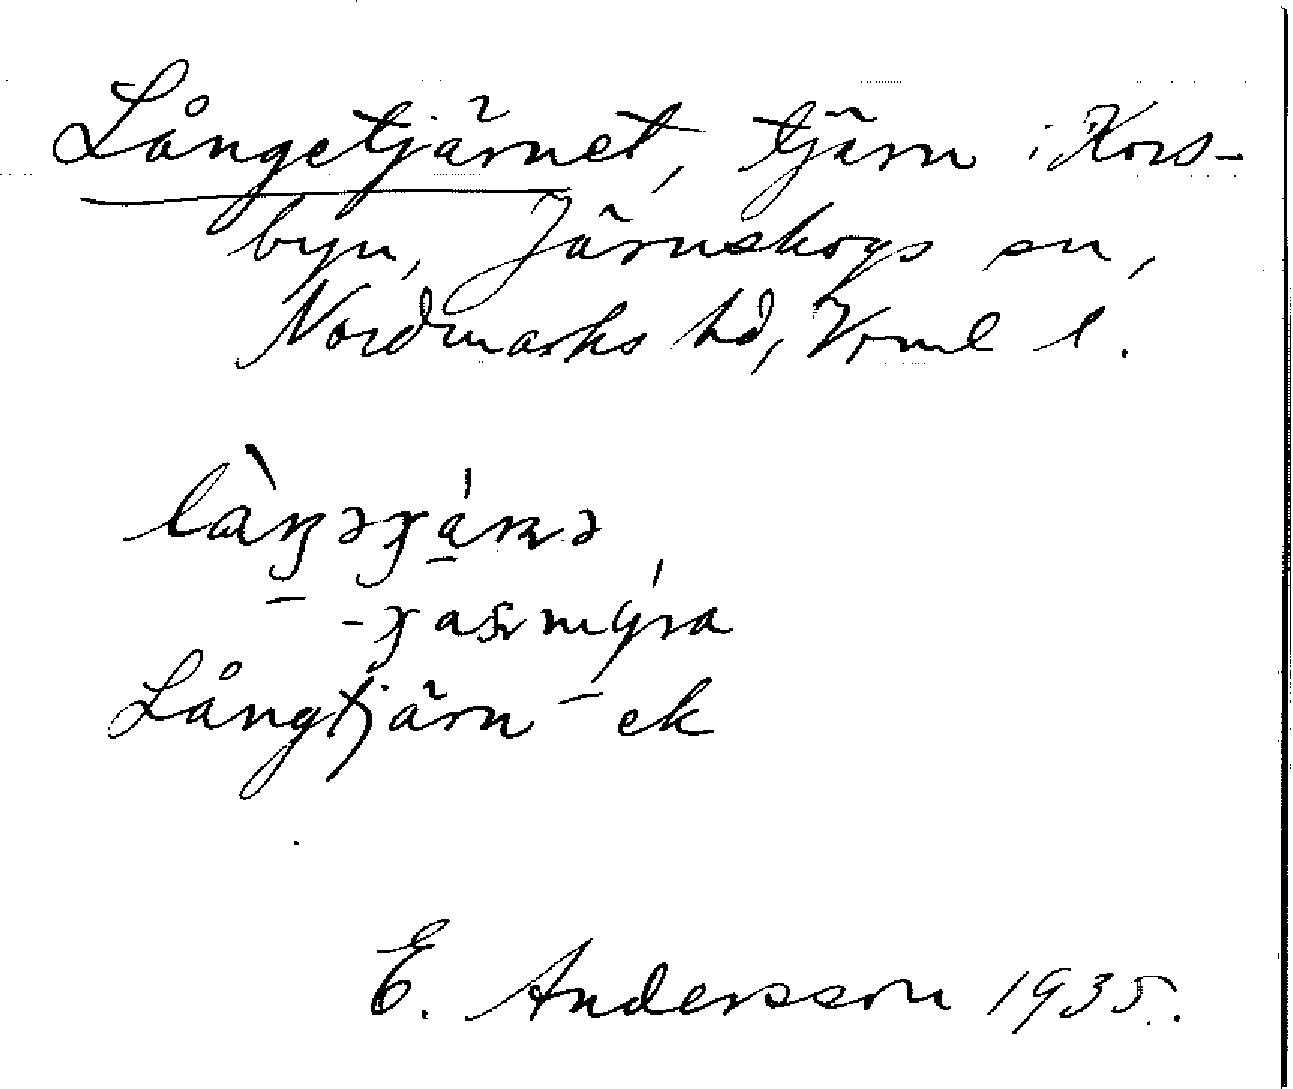 Långetjärnet, tjärn i Kors-
byn, Järnskogs sn,
Nordmarks hd, Vrml l.
Långtjärn ek
E. Andersson 1935.